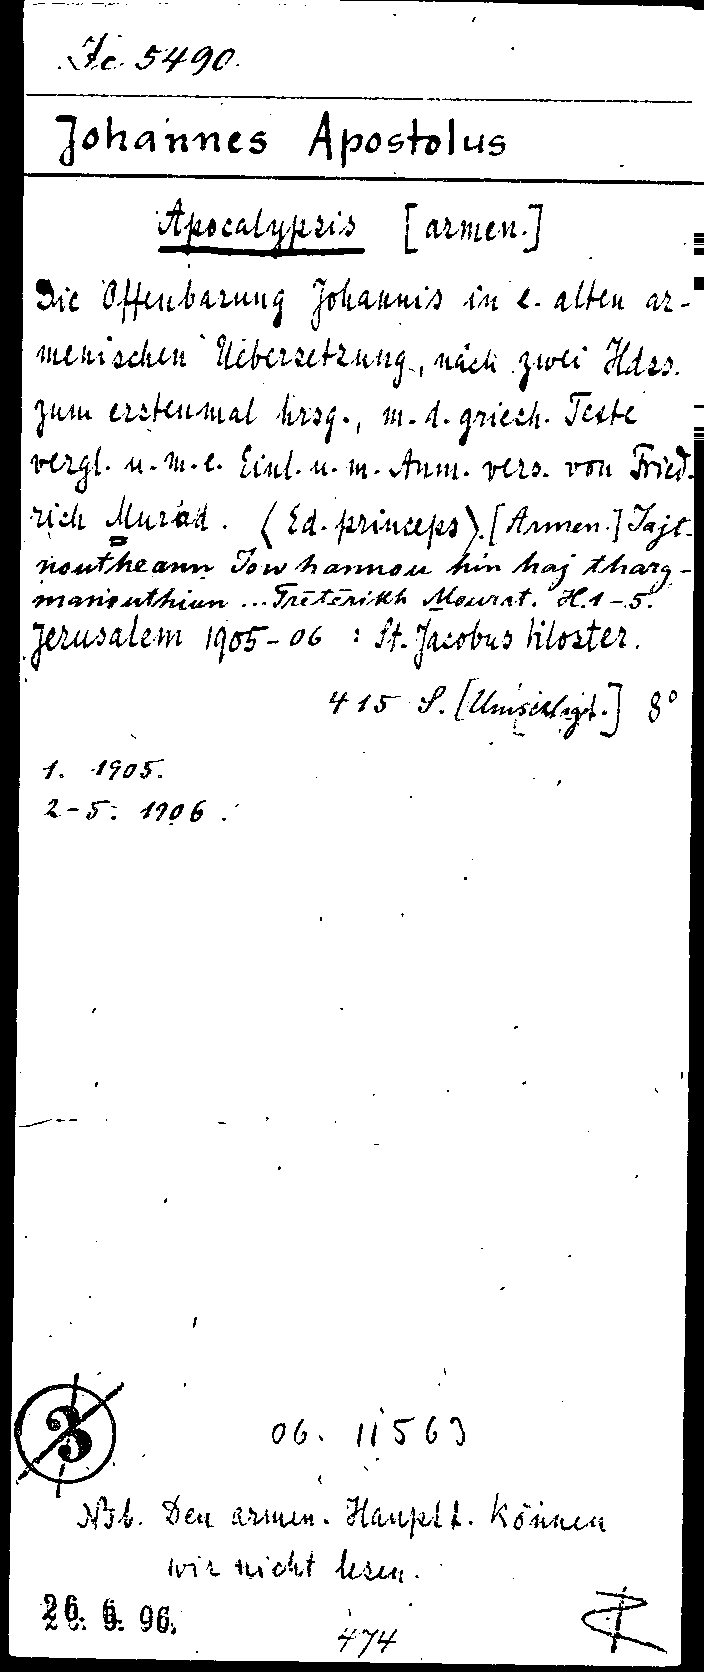 Ic 5490.
Johannes Apostolus
Apocalypsis [armen.]
Die Offenbarung Johannis in e. alten ar-
menischen Uebersetzung, nach zwei Hdss.
zum erstenmal hrsg., m. d. griech. Texte
vergl. u. m. e. Einl. u. m. Anm. vers. von Fried-
rich Murad. (Ed. princeps). [Armen.] Jajt-
noutheann Jowhannou hin haj tharg-
manouthiun ... Frēterikh Mourat. H. 1-5.
Jerusalem 1905-06 : St. Jacobus Kloster.
415 S. [Umschlagt.] 8°
1. 1905.
2-5. 1906.
3
06. 11563
Nb. Den armen. Hauptt. können
wir nicht lesen.
26. 6. 96.
474